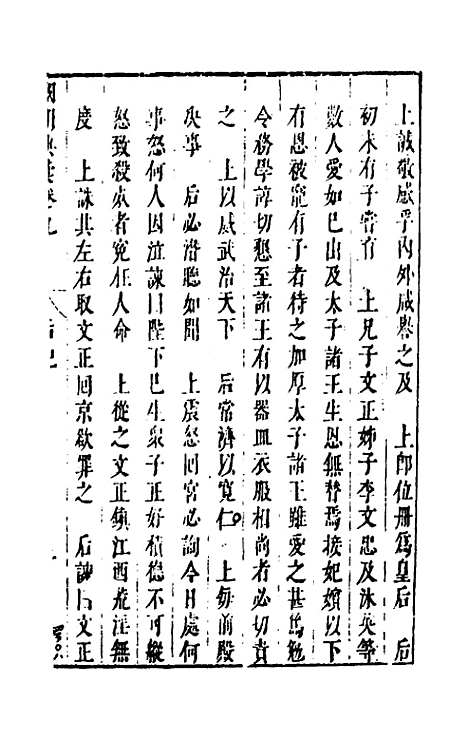 上誠敬感孚內外咸譽之及　上郎位冊爲皇后　后
初未有子嘗育　上兄子文正姊子李文忠及沐英等
數人愛如己出及太子諸王生恩無替焉接妃嬪以下
有恩被寵有子者待之加厚太子諸王雖愛之甚篤勉
令務學諄切懇至諸王有以器皿衣服相尚者必切責
之　上以威武治天下　后常濟以寬仁　上每前殿
决事　后必潛聽如聞　上震怒回宮必詢今日處何
事怒何人因泣諫曰陛下已生衆子正好積德不可縱
怒致殺衆者冤枉人命　上從之文正鎮江西荒淫無
度　上誅其左右取文正回京欲罪之　后諫曰文正
卷九　后